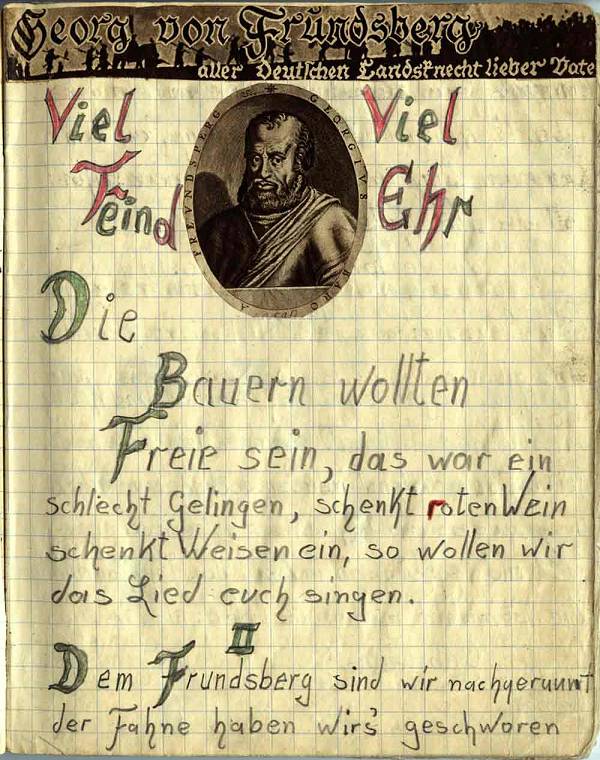 Georg von Frundsberg
aller Deutschen Landsknecht lieber Vate
Viel Viel
Feind Ehr
GEORGIUS
BARO
FREUNDSPERG
Die
Bauern wollten
Freie sein, das war ein
schlecht Gelingen, schenkt roten Wein
schenkt Weisen ein, so wollen wir
das Lied euch singen.
II
Dem Frundsberg sind wir nachgeraunt
der Fahne haben wirs geschworen